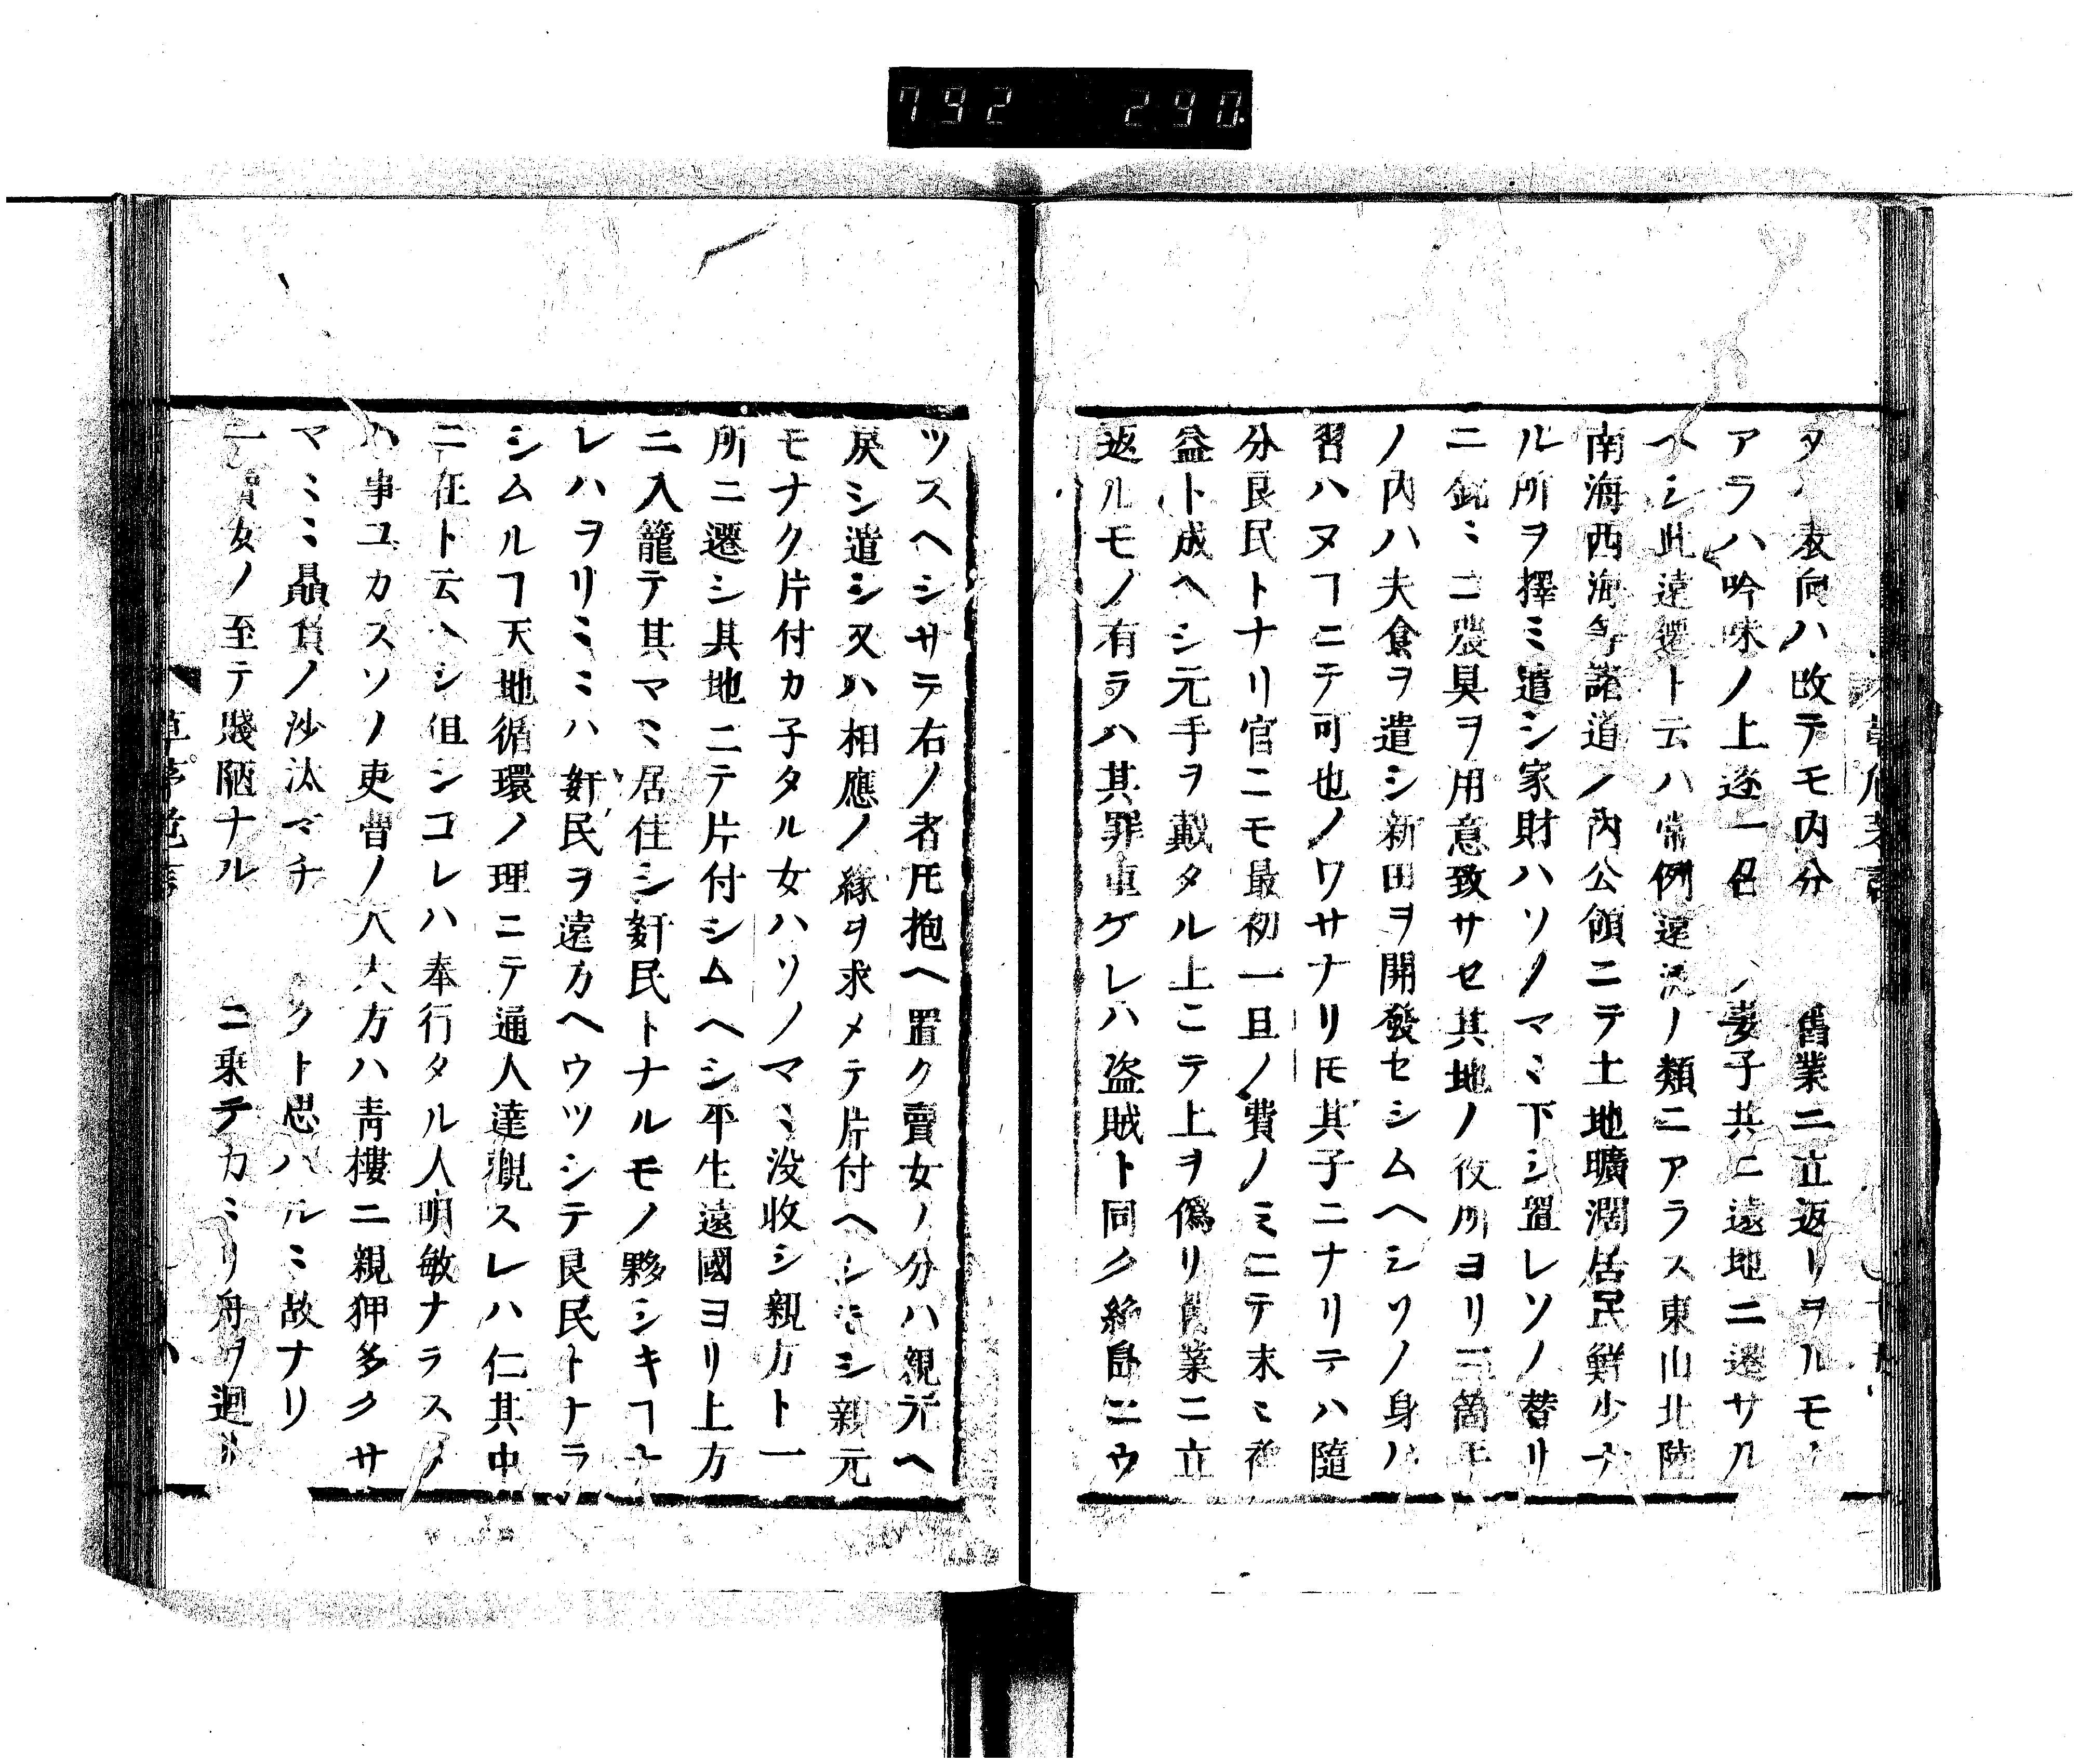 792 290
タ 表向ハ改テモ内分 舊業ニ立返リヲルモ
アラハ吟味ノ上逐一召 妻子共ニ遠地ニ遷サル
ヘシ此遠遷ト云ハ常例遠流ノ類ニアラス東山北陸
南海西海等諸道ノ内公領ニテ土地曠濶居民鮮少ナ
ル所ヲ擇ミ遣シ家財ハソノマミ下シ置レソノ替リ
ニ銘ミニ農具ヲ用意致サセ其地ノ役所ヨリ三箇年
ノ内ハ夫食ヲ遣シ新田ヲ開發セシムヘシソノ身ハ
習ハヌヿニテ可也ノワサナリ𪜈其子ニナリテハ隨
分良民トナリ官ニモ最初一旦ノ費ノミニテ末ミ裨
益ト成ヘシ元手ヲ戴タル上ニテ上ヲ僞リ舊業ニ立
返ルモノ有ラハ其罪重ケレハ盗賊ト同ク絶島ニウ
ツスヘシサテ右ノ者𪜈抱ヘ置ク賣女ノ分ハ親元ヘ
戻シ遣シ又ハ相應ノ緣ヲ求メテ片付ヘシ シ親元
モナク片付カ子タル女ハソノマミ没收シ親方ト一
所ニ遷シ其地ニテ片付シムヘシ平生遠國ヨリ上方
ニ入籠テ其マミ居住シ姧民トナルモノ夥シキヿナ
レハヲリミミハ姧民ヲ遠方ヘウツシテ良民トナラ
シムルヿ天地循環ノ理ニテ通人達觀スレハ仁其中
ニ在ト云ヘシ但シコレハ奉行タル人明敏ナラスメ
ハ事ユカスソノ吏曹ノ人大方ハ靑樓ニ親狎多クサ
マミミ贔負ノ沙汰マチ クト思ハルミ故ナリ
一賣女ノ至テ賤陋ナル ニ乗テカミリ舟ヲ廻リ
草茅危言